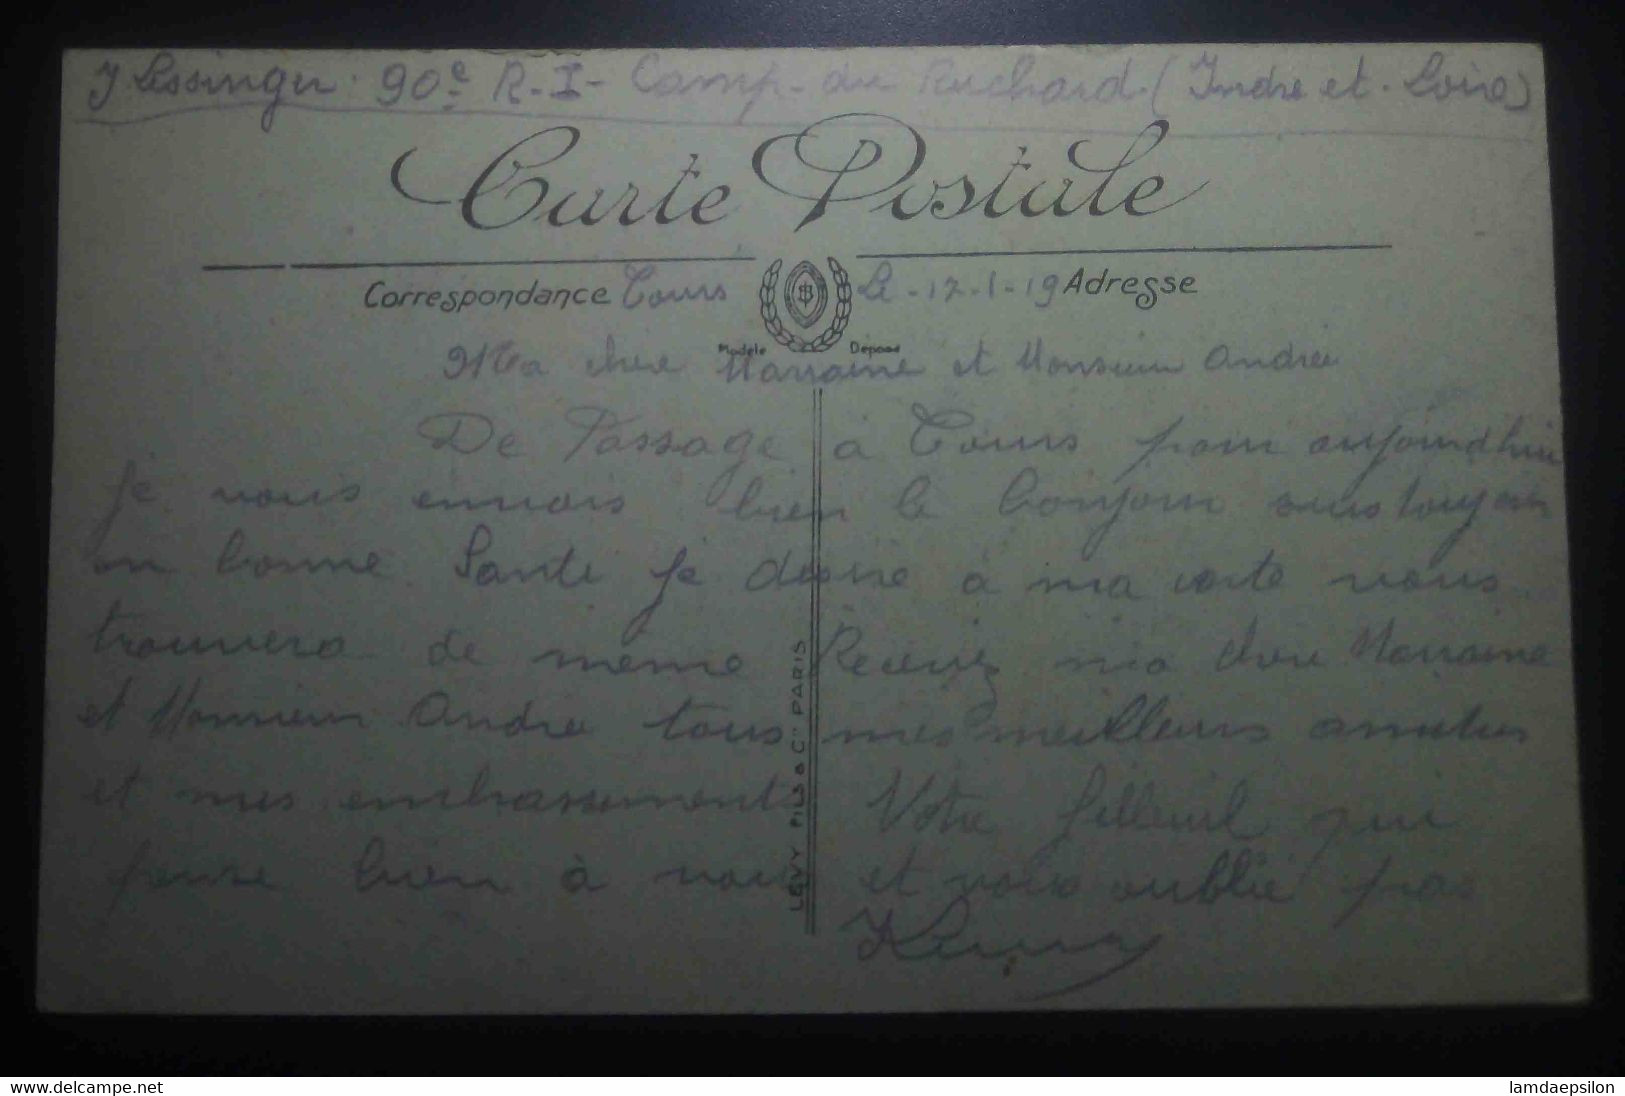 J Lessinger. 90e R. I - Camp. du Ruchard. (Indre et. Loire)
Carte Postale
Correspondance Tours Le - 12-1-19 Adresse
Modèle Déposé
Ma chere Marraine et Monsieur André
De Passage à Tours pour aujourdhui
je vous envois bien le bonjour suis toujours
en bonne Santé je désire à ma carte vous
trouvera de meme Recevez ma chere Marraine
et Monsieur Andre tous mes meilleurs amities
et mes embrassements Votre filleuil qui
pense bien à vous et vous oublie pas
LEVY FILS & Cie PARIS
www.delcampe.net
lamdaepsilon